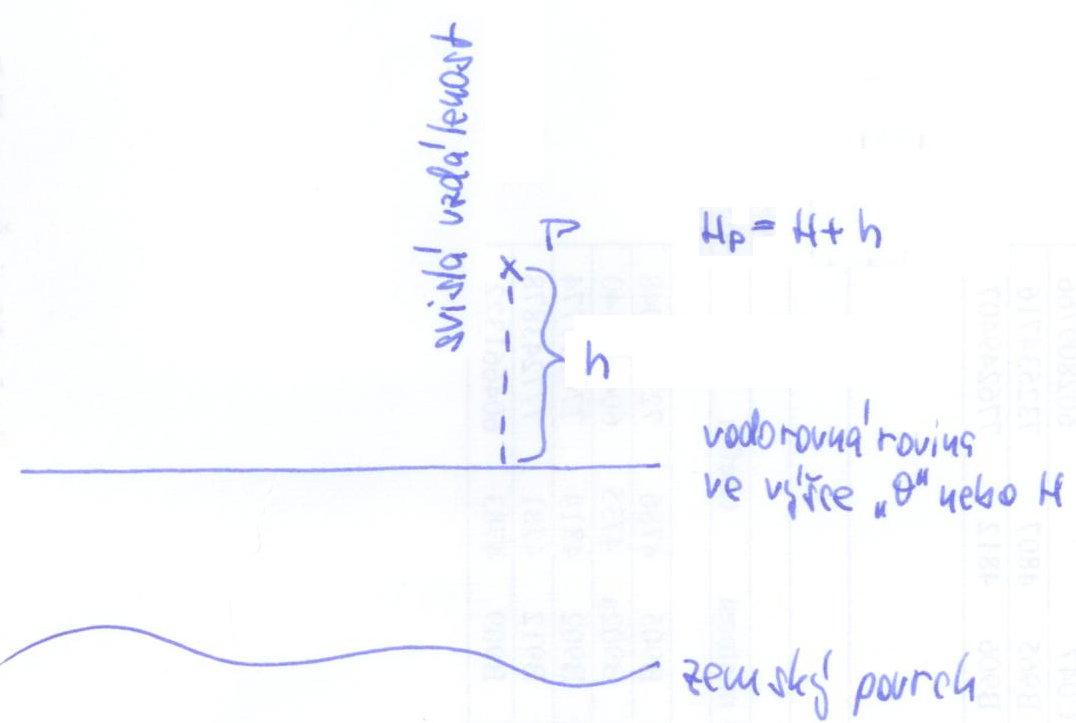 svislá vzdálenost
P
Hp = H + h
h
vodorovná rovina
ve výšce „0" nebo H
zemský povrch